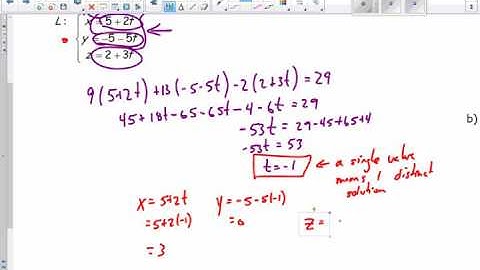 L: x = 5 + 2t
y = -5 - 5t
z = 2 + 3t
9(5+2t)+13(-5-5t)-2(2+3t)=29
45+18t-65-65t-4-6t=29
-53t = 29-45+65+4
-53t = 53
t = -1 ← a single value means 1 distinct solution
b)
x = 5+2t
= 5+2(-1)
= 3
y = -5-5(-1)
= 0
z =